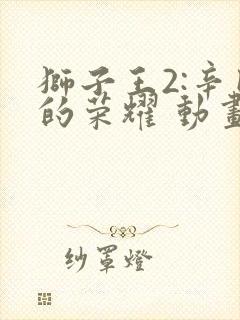 獅子王2:辛
的荣耀 動畫
纱罩燈